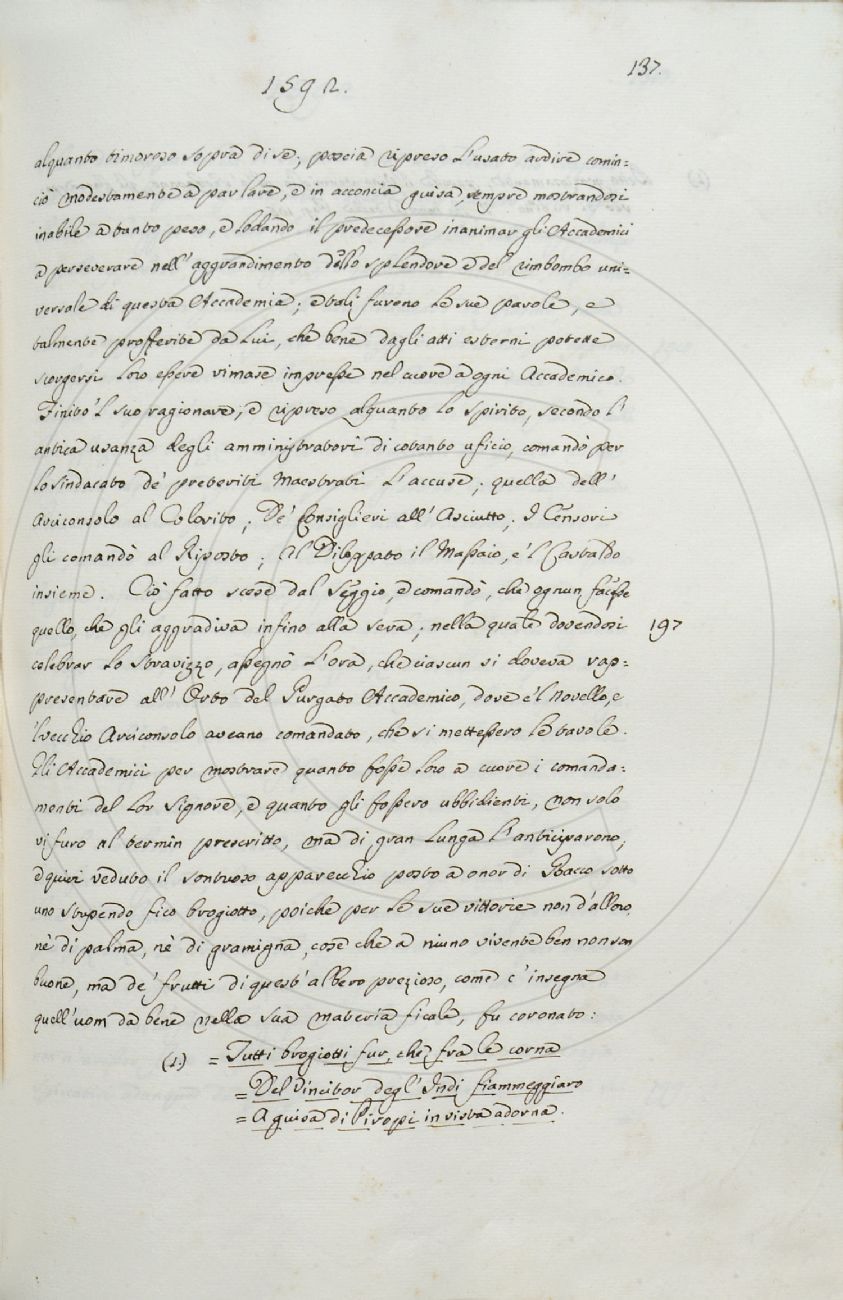 137.
1592.
alquanto timoroso sopra di sè; poscia ripreso l'usato ardire comin=
ciò modestamente a parlare, e in acconcia guisa, sempre mostrandosi
inabile a tanto peso, e lodando il predecessore inanimar gli Accademici
a perseverare nell'aggrandimento dello splendore e del rimbombo uni=
versale di questa Accademia; e tali furono le sue parole, e
talmente profferite da lui, che bene dagli atti esterni potette
scorgersi loro essere rimase impresse nel cuore a ogni Accademico.
Finito 'l suo ragionare, e ripreso alquanto lo spirito, secondo l'
antica usanza degli amministratori di cotanto uficio, comandò per
lo sindacato de' preteriti Maestrati l'accuse; quella dell'
Arciconsolo al Colorito; De' Consiglieri all'Asciutto; I Censori
gli comandò al Riposto; Al Dileguato il Massaio, e 'l Castaldo
insieme. Ciò fatto scese dal Seggio, e comandò, che ognun facesse
quello, che gli aggradiva infino alla sera; nella quale dovendosi 197
celebrar lo Stravizzo, assegnò l'ora, che ciascun si doveva rap=
presentare all'Orto del Purgato Accademico, dove e 'l novello, e
'l vecchio Arciconsolo aveano comandato, che si mettessero le tavole.
Gli Accademici per mostrare quanto fosse loro a cuore i comanda=
menti del lor Signore, e quanto gli fossero ubbidienti, non solo
vi furo al termin prescritto, ma di gran lunga l'anticiparono,
e quivi veduto il sontuoso apparecchio posto a onor di Bacco sotto
uno stupendo fico brogiotto, poichè per le sue vittorie non d'alloro,
nè di palma, nè di gramigna, cose che a niuno vivente ben non son
buone, ma de' frutti di quest'albero prezioso, come c'insegna
quell'uom da bene nella sua materia ficale, fu coronato:
(1.) = Tutti brogiotti fur, che fra le corna
= Del Vincitor degl'Indi fiammeggiaro
= A guisa di Piropi in vista adorna.